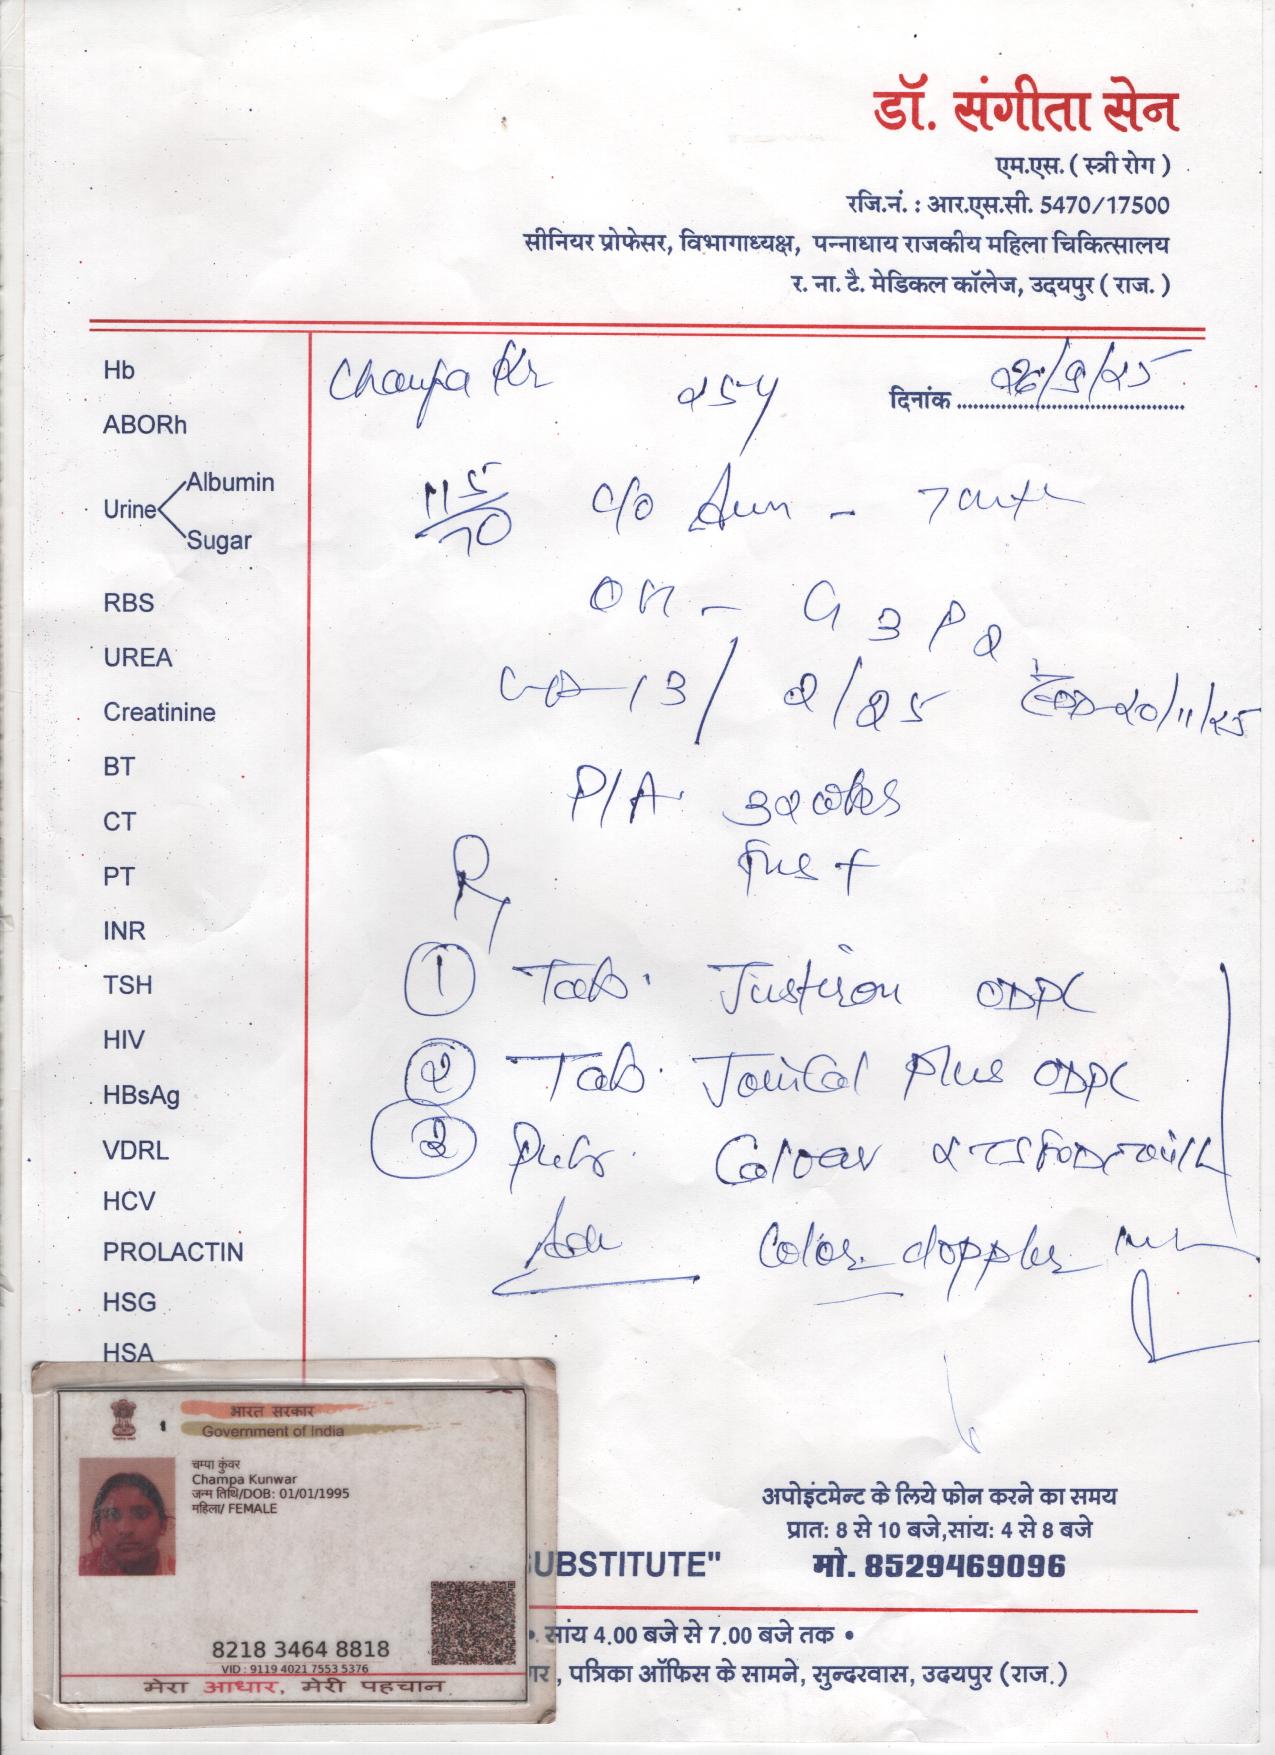 डॉ. संगीता सेन
एम.एस. ( स्त्री रोग )
रजि.नं. : आर.एस.सी. 5470/17500
सीनियर प्रोफेसर, विभागाध्यक्ष, पन्नाधाय राजकीय महिला चिकित्सालय
र. ना. टै. मेडिकल कॉलेज, उदयपुर ( राज. )
Hb
ABORh
Urine Albumin
Sugar
RBS
UREA
Creatinine
BT
CT
PT
INR
TSH
HIV
HBsAg
VDRL
HCV
PROLACTIN
HSG
HSA
Champa Kr 25y दिनांक 26/9/25
115/70 C/o Am -
OH - G3P2
13/2/25 EDD 20/11/25
P/A 32 wks
FHS +
Rx
① Tab.
② Tab. Plus
③
Adv Color doppler
भारत सरकार
Government of India
चम्पा कुंवर
Champa Kunwar
जन्म तिथि/DOB: 01/01/1995
महिला/ FEMALE
8218 3464 8818
VID : 9119 4021 7553 5376
मेरा आधार, मेरी पहचान
अपोइंटमेन्ट के लिये फोन करने का समय
प्रात: 8 से 10 बजे,सांय: 4 से 8 बजे
UBSTITUTE" मो. 8529469096
• सांय 4.00 बजे से 7.00 बजे तक •
, पत्रिका ऑफिस के सामने, सुन्दरवास, उदयपुर (राज.)